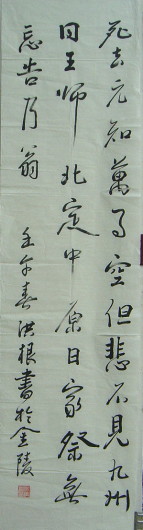 死去元知萬事空但悲不見九州
同王師北定中原日家祭無
忘告乃翁 壬午春洪根書於金陵